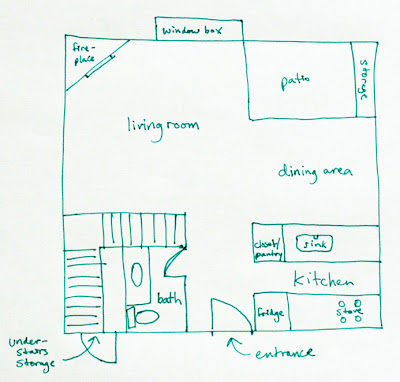 window box
fire-
place
patio
storage
living room
dining area
closet/
pantry
sink
kitchen
bath
fridge
stove
under-
stairs
storage
entrance